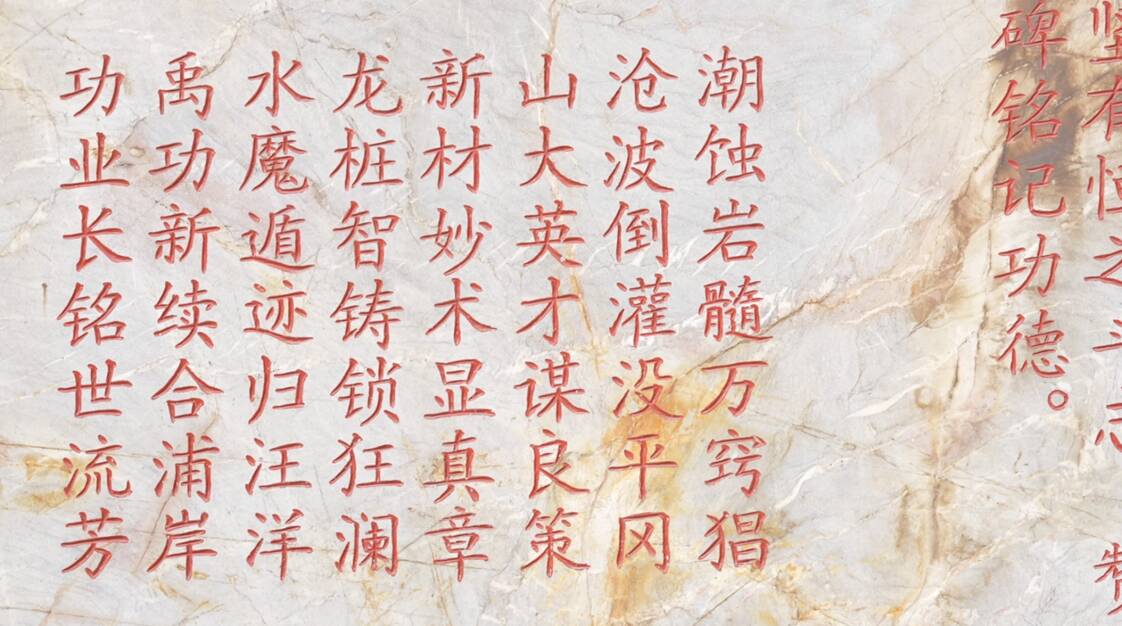 坚有恒之
碑铭记功德。
潮蚀岩髓万窍猖
沧波倒灌没平冈
山大英才谋良策
新材妙术显真章
龙桩智铸锁狂澜
水魔遁迹归汪洋
禹功新续合浦岸
功业长铭世流芳